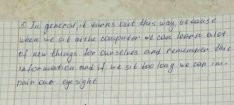 5. In general it turns out this way, because
when we sit at the computer we can learn a lot
of new things for ourselves and remember this
information and if we sit too long we can im-
pair our eyesight